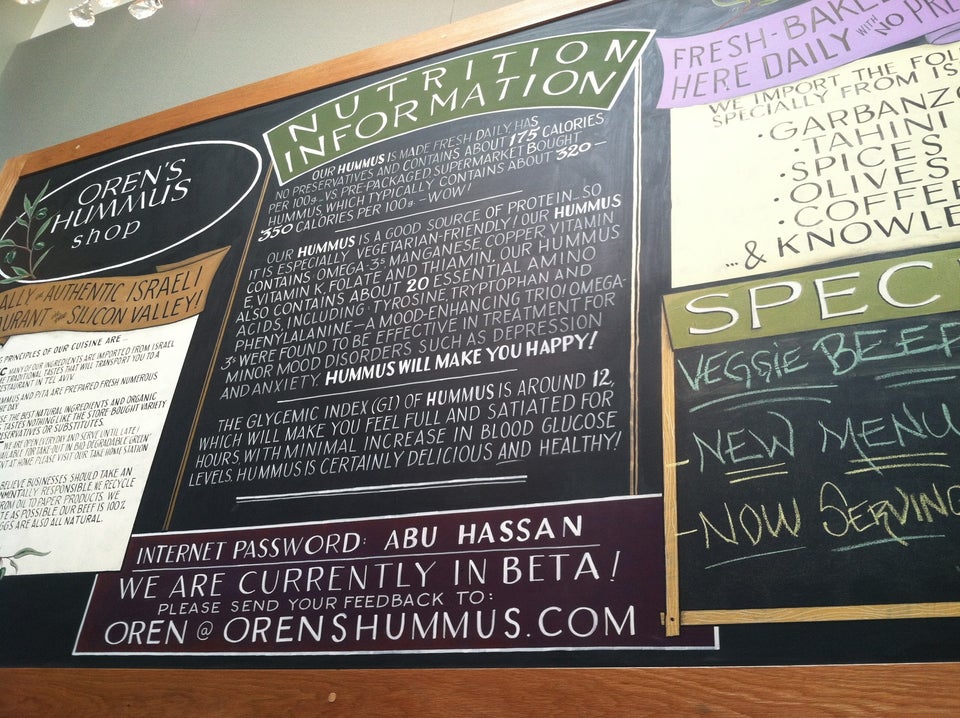 OREN'S
HUMMUS
shop
ALLY AUTHENTIC ISRAELI
AURANT SILICON VALLEY!
G PRINCIPLES OF OUR CUISINE ARE...
MANY OF OUR INGREDIENTS ARE IMPORTED FROM ISRAEL
TRADITIONAL TASTES THAT WILL TRANSPORT YOU TO A
RESTAURANT IN TEL AVIV.
MMUS AND PITA ARE PREPARED FRESH NUMEROUS
DAY
SE THE BEST NATURAL INGREDIENTS AND ORGANIC
TASTES NOTHING LIKE THE STORE BOUGHT VARIETY
ESERVATIVES OR SUBSTITUTES.
WE ARE OPEN EVERYDAY AND SERVE UNTIL LATE!
AVAILABLE FOR TAKE-OUT IN BIO DEGRADABLE 'GREEN'
AT HOME. PLEASE VISIT OUR TAKE HOME STATION
BELIEVE BUSINESSES SHOULD TAKE AN
NMENTALLY RESPONSIBLE. WE RECYCLE
FROM OIL TO PAPER PRODUCTS. WE
AS POSSIBLE. OUR BEEF IS 100%
GGS ARE ALSO ALL NATURAL.
NUTRITION
INFORMATION
OUR HUMMUS IS MADE FRESH DAILY, HAS
NO PRESERVATIVES AND CONTAINS ABOUT 175 CALORIES
PER 100g - VS PRE-PACKAGED SUPERMARKET BOUGHT
HUMMUS, WHICH TYPICALLY CONTAINS ABOUT 320 -
350 CALORIES PER 100g. - WOW!
OUR HUMMUS IS A GOOD SOURCE OF PROTEIN... SO
IT IS ESPECIALLY VEGETARIAN-FRIENDLY! OUR HUMMUS
CONTAINS OMEGA-3s MANGANESE, COPPER, VITAMIN
E, VITAMIN K, FOLATE AND THIAMIN, OUR HUMMUS
ALSO CONTAINS ABOUT 20 ESSENTIAL AMINO
ACIDS, INCLUDING: TYROSINE, TRYPTOPHAN AND
PHENYLALANINE - A MOOD-ENHANCING TRIO! OMEGA-
3s WERE FOUND TO BE EFFECTIVE IN TREATMENT FOR
MINOR MOOD DISORDERS SUCH AS DEPRESSION
AND ANXIETY. HUMMUS WILL MAKE YOU HAPPY!
THE GLYCEMIC INDEX (GI) OF HUMMUS IS AROUND 12,
WHICH WILL MAKE YOU FEEL FULL AND SATIATED FOR
HOURS, WITH MINIMAL INCREASE IN BLOOD GLUCOSE
LEVELS. HUMMUS IS CERTAINLY DELICIOUS AND HEALTHY!
INTERNET PASSWORD: ABU HASSAN
WE ARE CURRENTLY IN BETA!
PLEASE SEND YOUR FEEDBACK TO:
OREN @ ORENSHUMMUS.COM
FRESH-BAKE
HERE DAILY WITH NO PRE
WE IMPORT THE FOL
SPECIALLY FROM IS
·GARBANZO
·TAHINI
·SPICES
·OLIVES
·COFFEE
...& KNOWLE
SPECI
VEGGIE BEEF
-NEW MENU
-NOW SERVING